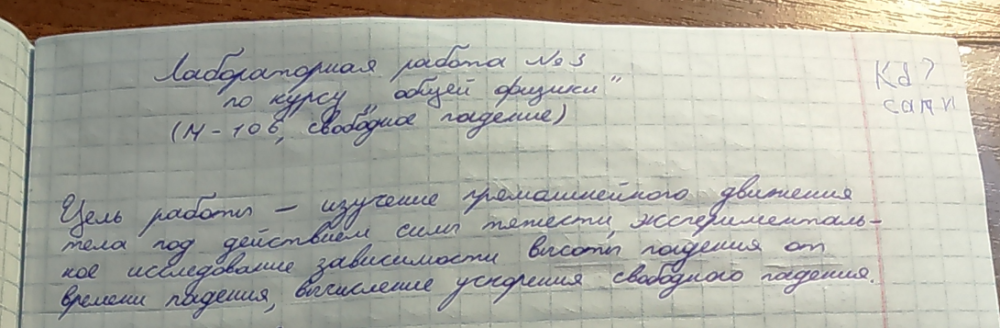 Лабораторная работа №3
по курсу „общей физики"
(М-106, свободное падение)
Kd?
Цель работы – изучение прямолинейного движения
тела под действием силы тяжести, эксперименталь-
ное исследование зависимости высоты падения от
времени падения, вычисление ускорения свободного падения.